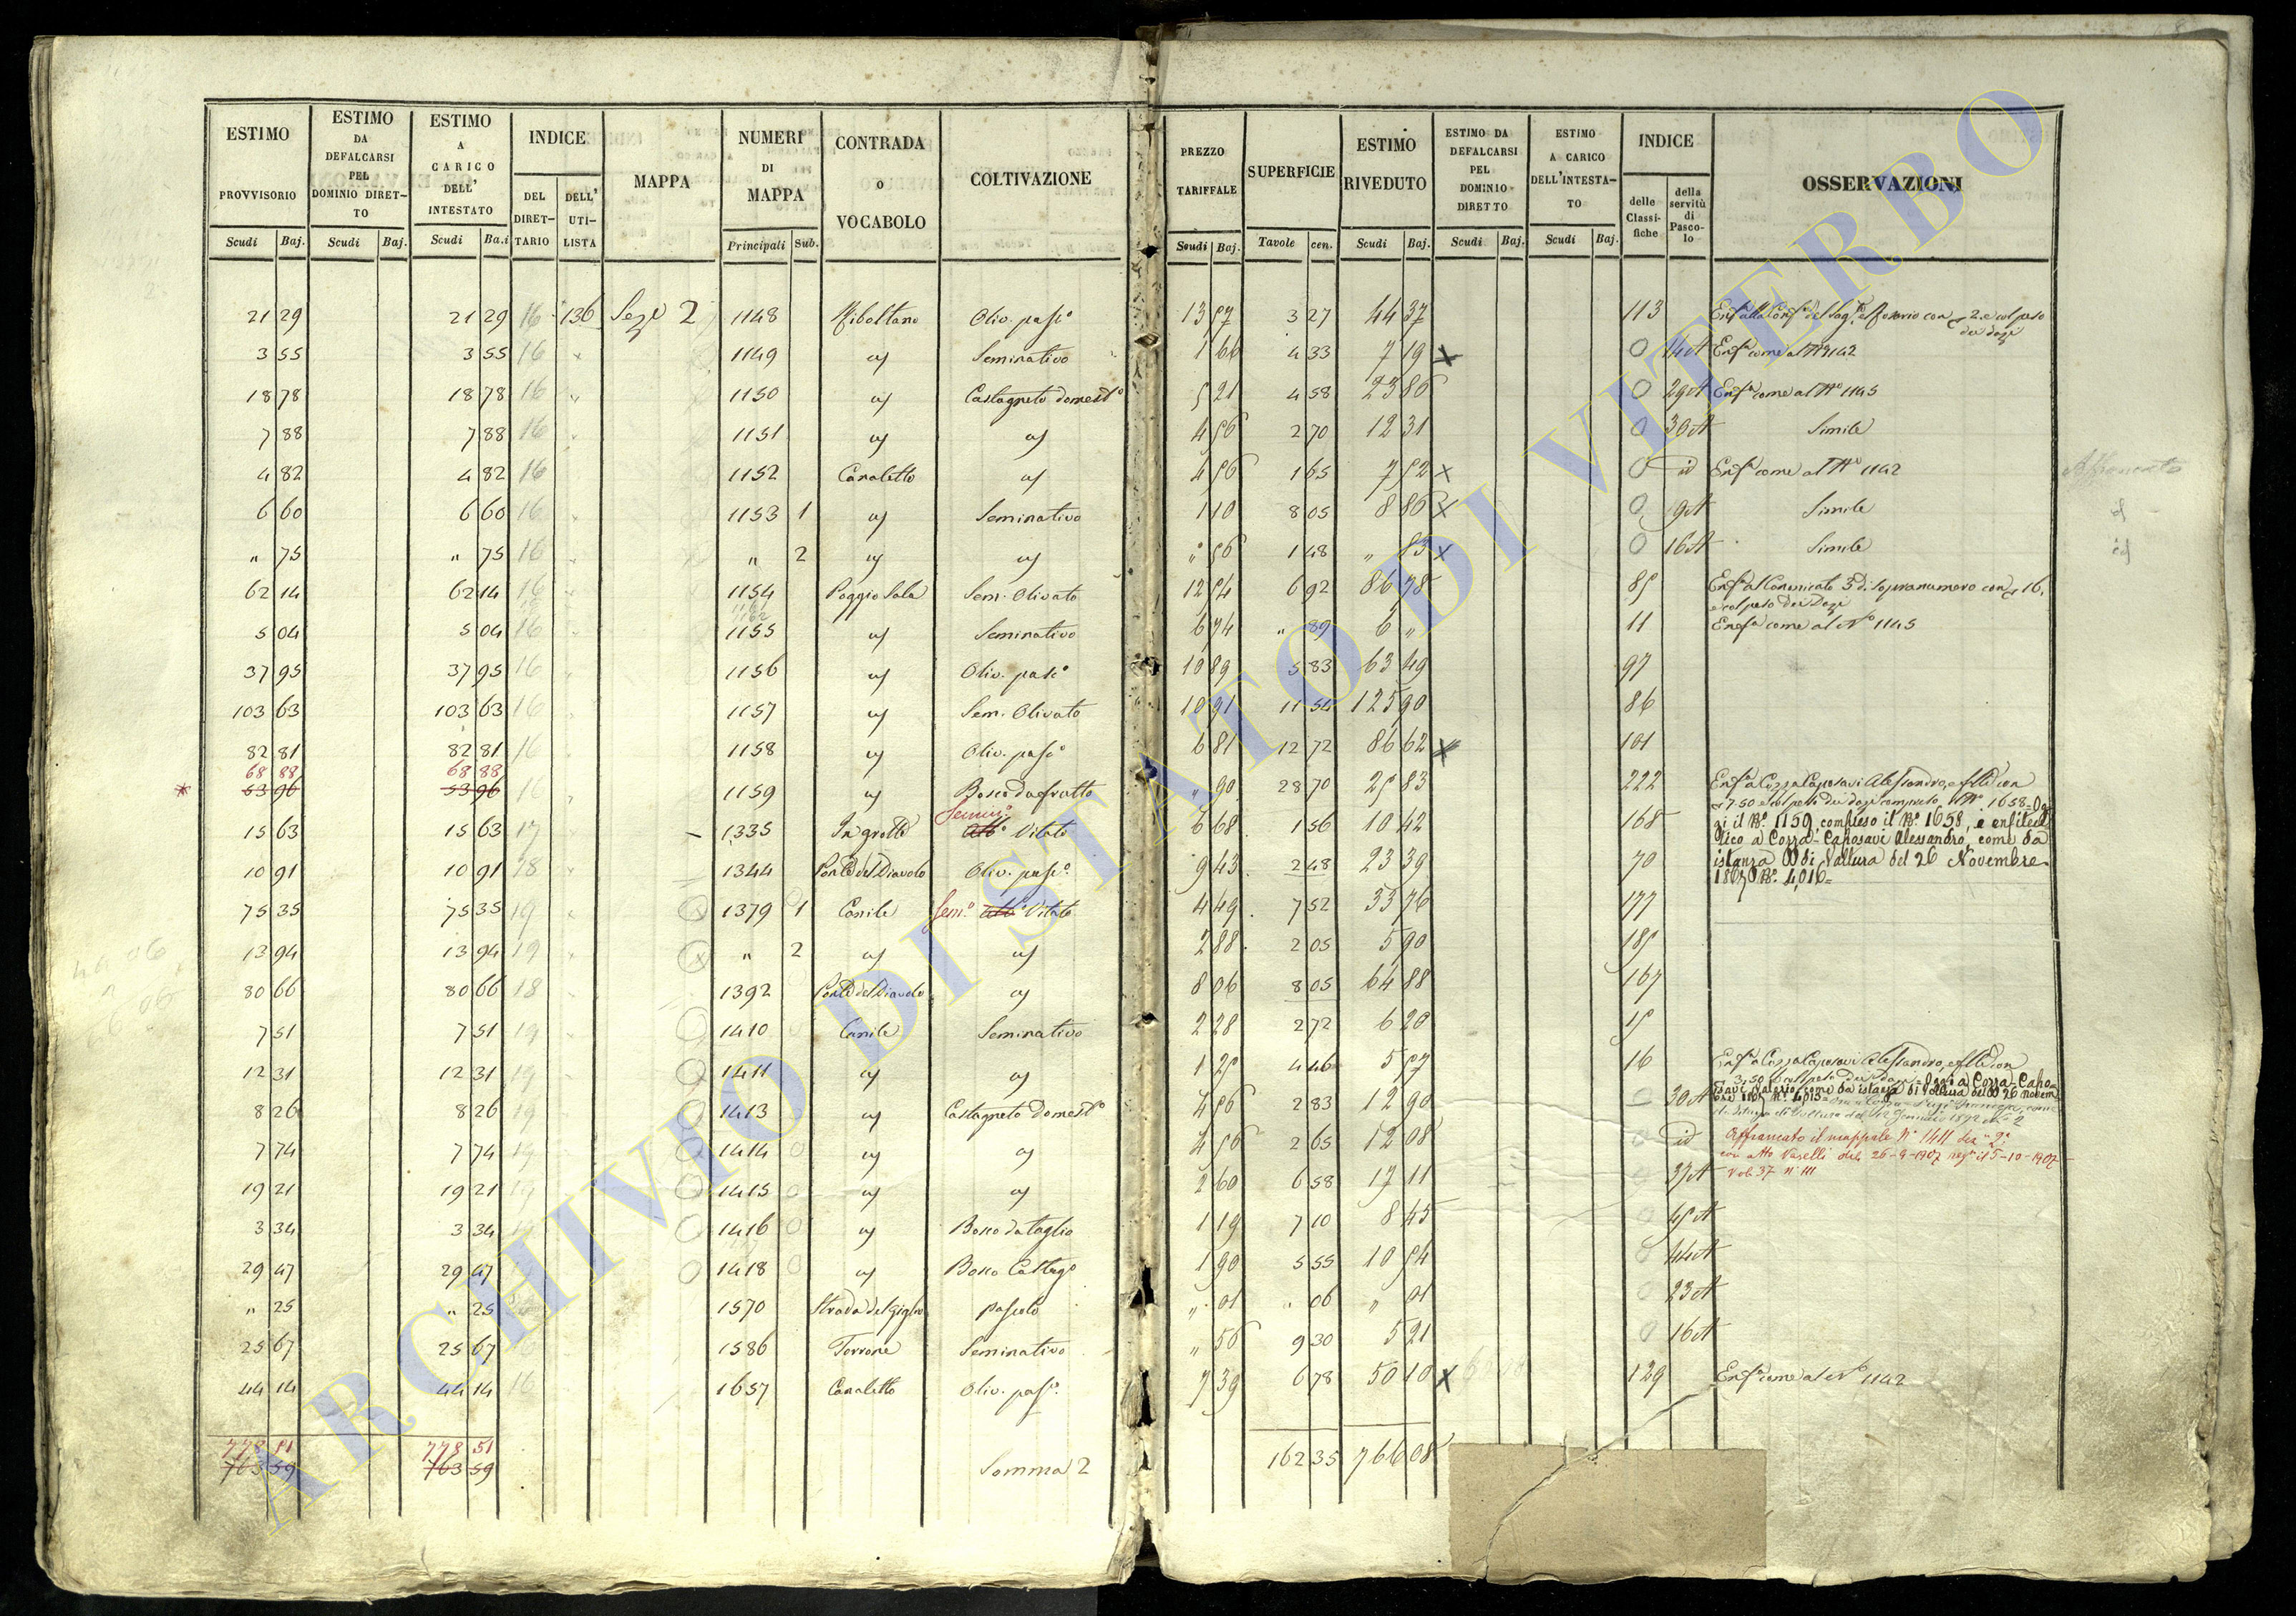 ESTIMO PROVVISORIO Scudi Baj. | ESTIMO DA DEFALCARSI PEL DOMINIO DIRETTO Scudi Baj. | ESTIMO A CARICO DELL' INTESTATO Scudi Ba.i | INDICE DEL DIRETTARIO DELL' UTILISTA | MAPPA | NUMERI DI MAPPA Principali Sub. | CONTRADA O VOCABOLO | COLTIVAZIONE | PREZZO TARIFFALE Scudi Baj. | SUPERFICIE Tavole cen. | ESTIMO RIVEDUTO Scudi Baj. | ESTIMO DA DEFALCARSI PEL DOMINIO DIRETTO Scudi Baj. | ESTIMO A CARICO DELL'INTESTATO Scudi Baj. | INDICE delle Classifiche della servitù di Pascolo | OSSERVAZIONI
21 29 21 29 16 136 Seze 2 1148 Oliv. pasc.o 13 57 3 27 44 37 113
3 55 3 55 16 " 1149 id Seminativo 1 66 4 33 7 19 x 0 14A Enf.a come al N.o 1142
18 78 18 78 16 " 1150 id Castagneto domest.o 5 21 4 58 23 86 0 29A Enf.a come al N.o 1145
7 88 7 88 16 " 1151 id id 4 56 2 70 12 31 0 30A Simile
4 82 4 82 16 1152 Canaletto id 4 56 1 65 7 52 x 0 id Enf.a come al N.o 1142 Affrancato
6 60 6 60 16 " 1153 1 id Seminativo 1 10 8 05 8 86 x 0 9A Simile id
" 75 " 75 16 " " 2 id id " 56 1 48 " 83 x 0 16A Simile id
62 14 62 14 16 1154 Poggio Sala Sem. Olivato 12 54 6 92 86 78 85 Enf.a al Canonicato 3.o di sopranumero con 16,
e col peso dei Dazi
5 04 5 04 16 1155 id Seminativo 6 74 " 89 6 " 11 Enf.a come al N.o 1145
37 95 37 95 16 1156 id Oliv. pasc.o 10 89 5 83 63 49 97
103 63 103 63 16 1157 id Sem. Olivato 10 91 11 54 125 90 86
82 81 82 81 16 1158 id Oliv. pasc.o 6 81 12 72 86 62 x 101
68 88 68 88
* 53 96 53 96 16 " 1159 id Bosco da frutto " 90 28 70 25 83 222 Enf.a Cozza Caposavi Alessandro, e fllli con
7.50 e col peso dei dazi compreso il N.o 1658 - Og
15 63 15 63 17 1335 In grotte Semin.o Vitato 6 68 1 56 10 42 168 gi il N.o 1159, compreso il N.o 1658, è enfiteu
tico a Cozza-Caposavi Alessandro, come da
10 91 10 91 18 1344 Ponte del Diavolo Oliv. pasc.o 9 43 2 48 23 39 70 istanza di Voltura del 26 Novembre
1870 N.o 4016=
75 35 75 35 19 " 1379 1 Canile Sem.o Vitato 4 49 7 52 33 76 177
13 94 13 94 19 " " 2 id id 2 88 2 05 5 90 185
80 66 80 66 18 1392 Ponte del Diavolo id 8 06 8 05 64 88 167
7 51 7 51 19 1410 Canile Seminativo 2 28 2 72 6 20 15
12 31 12 31 19 1411 id id 1 25 4 46 5 57 16 Enf.a Cozza Caposavi Alessandro, e fllli con
3.50 e col peso dei dazi = Oggi a Cozza-Capo-
8 26 8 26 19 1413 id Castagneto Domest.o 4 56 2 83 12 90 30A savi Valerio, come da istanza di Voltura del 26 novem
7 74 7 74 19 1414 id id 4 56 2 65 12 08 0 id Affrancato il mappale N.o 1411 sez.e 2.a
con atto Vaselli del 26-9-1907 reg.o il 5-10-1907
19 21 19 21 19 1415 0 id id 2 60 6 58 17 11 37A Vol. 37 n. 111
3 34 3 34 19 1416 0 id Bosco da taglio 1 19 7 10 8 45 0 45A
29 47 29 47 1418 0 id Bosco Castag.o 1 90 5 55 10 54 0 44A
" 25 " 25 1570 Strada del giglio pascolo " 01 " 06 " 01 0 23A
25 67 25 67 1586 Torrone Seminativo " 56 9 30 5 21 0 16A
44 14 44 14 16 1657 Canaletto Oliv. pasc.o 7 39 6 78 50 10 x 129 Enf.a come al N.o 1142
778 51 778 51
763 59 763 59 Somma 2 162 35 766 08
ARCHIVIO DI STATO DI VITERBO